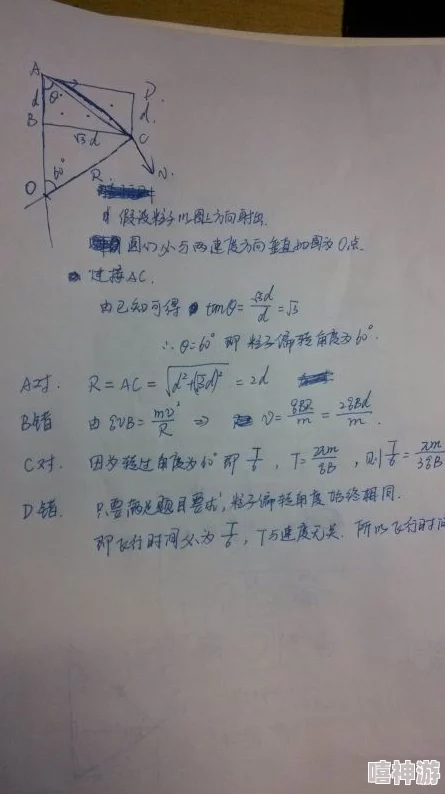 A
d θ D.
B d.
√3 d C
R. N.
O 60°
假设粒子以图上方向射出.
圆心必与两速度方向垂直如图为O点.
连接AC.
由已知可得 tanθ = √3d/d = √3
∴ θ=60° 即粒子偏转角度为60°.
A对. R = AC = √(d²+(√3d)²) = 2d
B错 由 qvB = mv²/R ⇒ v = qBR/m = 2qBd/m.
C对. 因为转过角度为60° 即 T/6, T = 2πm/qB, 则 T/6 = πm/3qB
D错. 只要满足题目要求,粒子偏转角度始终相同.
即飞行时间必为 T/6, T与速度无关. 所以飞行时间
嘻神游